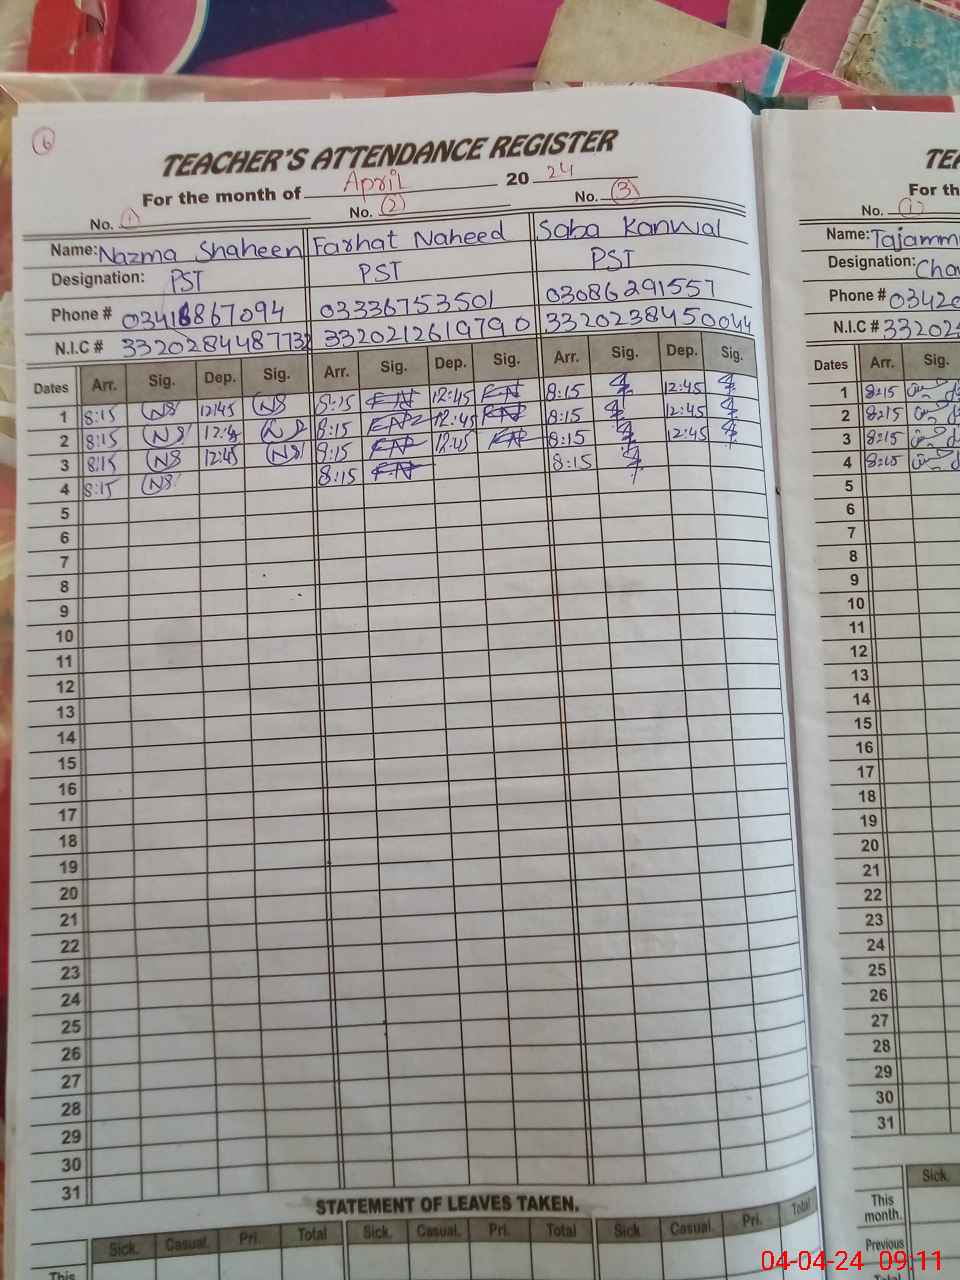 6
TEACHER'S ATTENDANCE REGISTER
For the month of April 2024
No. 1 No. 2 No. 3
Name: Nazma Shaheen Farhat Naheed Saba Kanwal
Designation: PST PST PST
Phone # 03416867094 03336753501 03086291557
N.I.C # 3320284487732 3320212619790 3320238450044
Dates Arr. Sig. Dep. Sig. Arr. Sig. Dep. Sig. Arr. Sig. Dep. Sig.
1 8:15 NS 12:45 NS 8:15 FN 12:45 FN 8:15 12:45
2 8:15 NS 12:4 NS 8:15 FN 12:45 FN 8:15 12:45
3 8:15 NS 12:45 NS 8:15 FN 12:45 FN 8:15 12:45
4 8:15 NS 8:15 FN 8:15
5
6
7
8
9
10
11
12
13
14
15
16
17
18
19
20
21
22
23
24
25
26
27
28
29
30
31
STATEMENT OF LEAVES TAKEN.
Sick. Casual. Pri. Total Sick. Casual. Pri. Total Sick Casual. Pri. Total
This
TE
For th
No. 1
Name: Tajamm
Designation: Cho
Phone # 0342
N.I.C # 33202
Dates Arr. Sig.
1 8:15
2 8:15
3 8:15
4 8:15
5
6
7
8
9
10
11
12
13
14
15
16
17
18
19
20
21
22
23
24
25
26
27
28
29
30
31
Sick.
This
month.
Previous
04-04-24 09:11